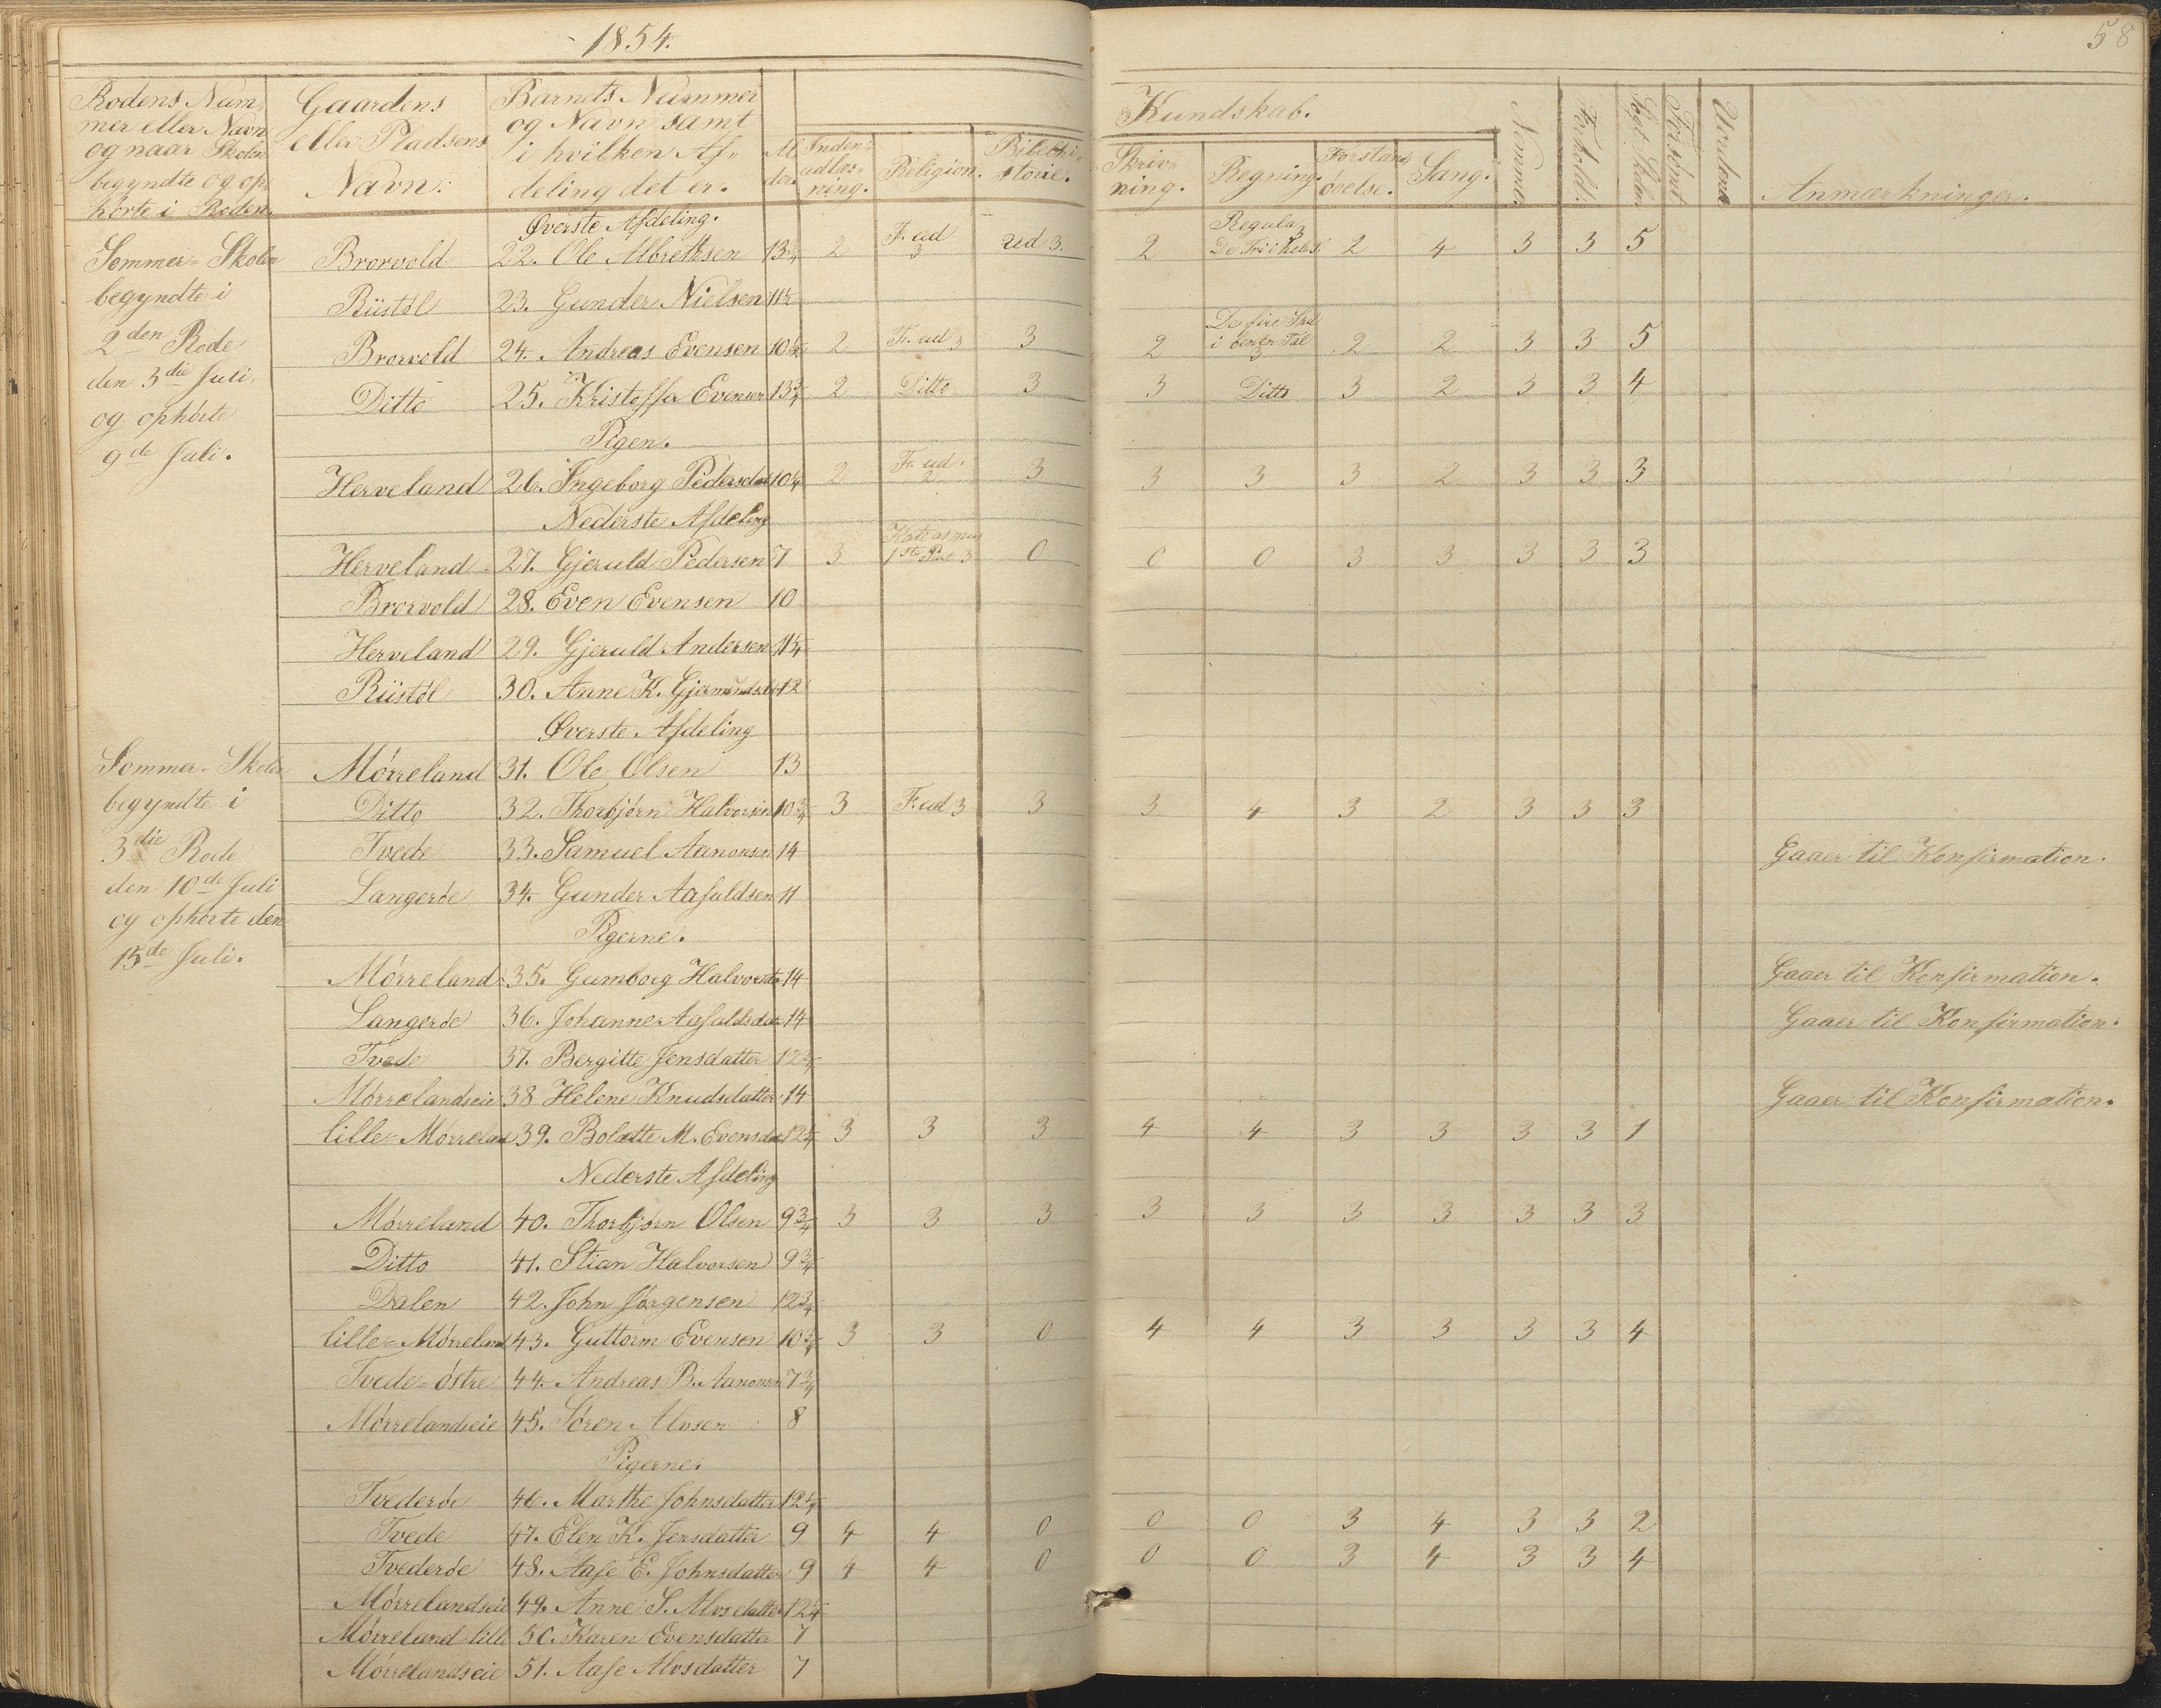 1854.
58
Rodens Num-
mer eller Navn
og naar Skolen
begyndte og op-
hörte i Roden.
Gaardens
eller Pladsens
Navn.
Barnets Nummer
og Navn samt
i hvilken Af-
deling det er.
Al
der.
Inden-
adlæs-
ning.
Religion.
Bibelhi-
storie.
Kundskab.
Skriv-
ning.
Regning.
Forstands
øvelse.
Sang.
Nemme.
Forhold.
Søgt Skolen
Forsømt
Anmærkninger.
Øverste Afdeling.
Sommer-Skolen
begyndte i
2den Rode
den 3die Juli,
og ophörte
9de Juli.
Brorvold 22. Ole Albrethsen 13 3/4 2 F. ud 3 ud 3. 2 Regula 3 4 3 3 5
Riistöl 23. Gunder Nielsen 11 1/2
Brorvold 24. Andreas Evensen 10 1/2 2 F. ud 3 3 2 De fire i 3 2 2 3 3 5
Ditto 25. Kristoffer Evensen 13 3/4 2 Ditto 3 3 Ditto 3 2 3 3 4
Pigen.
Herveland 26. Ingeborg Pedersdat 10 1/4 2 F. ud. 2 3 3 3 3 2 3 3 3
Nederste Afdeling
Herveland 27. Gjeruld Pedersen 7 3 1ste Part 3 0 0 0 3 3 3 3 3
Brorvold 28. Even Evensen 10
Herveland 29. Gjeruld Andersen 11 1/4
Riistöl 30. Anne K. Gjermundsdt 12
Øverste Afdeling
Sommer-Skolen
begyndte i
3die Rode
den 10de Juli
og ophörte den
15de Juli.
Mörreland 31. Ole Olsen 13
Ditto 32. Thorbjörn Halvorsen 10 3/4 3 F. ud 3 3 3 4 3 2 3 3 3
Tvede 33. Samuel Aanonsen 14 Gaaer til Konfirmation.
Langeröe 34. Gunder Aasuldsen 11
Pigerne.
Mörreland 35. Gumborg Halvorsdtr 14 Gaaer til Konfirmation.
Langeröe 36. Johanne Aasuldsdatr 14 Gaaer til Konfirmation.
Tvede 37. Bergitte Jensdatter 12 3/4
Mörrelandseie 38 Helene Knudsdatter 14 Gaaer til Konfirmation.
lille-Mörreland 39. Bolette M. Evensdat 12 1/4 3 3 3 4 4 3 3 3 3 1
Nederste Afdeling
Mörreland 40. Thorbjörn Olsen 9 3/4 3 3 3 3 3 3 3 3 3 3
Ditto 41. Stian Halvorsen 9 3/4
Dalen 42. John Jörgensen 12 3/4
lille-Mörreland 43. Guttorm Evensen 10 3/4 3 3 0 4 4 3 3 3 3 4
Tvede-östre 44. Andreas B. Aanonsen 7 3/4
Mörrelandseie 45. Sören Alvsen 8
Pigerne.
Tvederöe 46. Marthe Johnsdatter 12 1/4
Tvede 47. Elen K. Jensdatter 9 4 4 0 0 0 3 4 3 3 2
Tvederöe 48. Aase E. Johnsdatter 9 4 4 0 0 0 3 4 3 3 4
Mörrelandseie 49. Anne S. Alvsdatter 12 1/4
Mörreland-lille 50. Karen Evensdatter 7
Mörrelandseie 51. Aase Alvsdatter 7